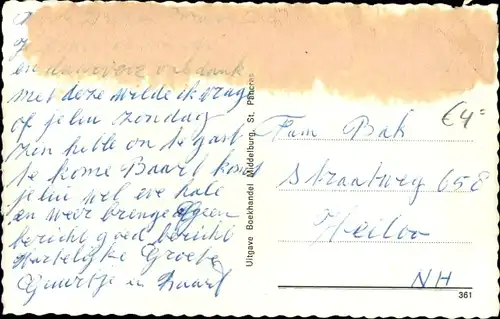 en daarvoor onze dank
met deze wilde ik vrage
of jelui zondag
zin hebbe om te gast
te kome Baart komt
jelui wel eve hale
en weer brenge Ggeen
bericht goed bericht
Hartelijke Groete
Geurtje en Baart
Uitgave Boekhandel Middelburg, St. Pancras
€4=
Fam Bak
Straatweg 65E
Heiloo
NH
361